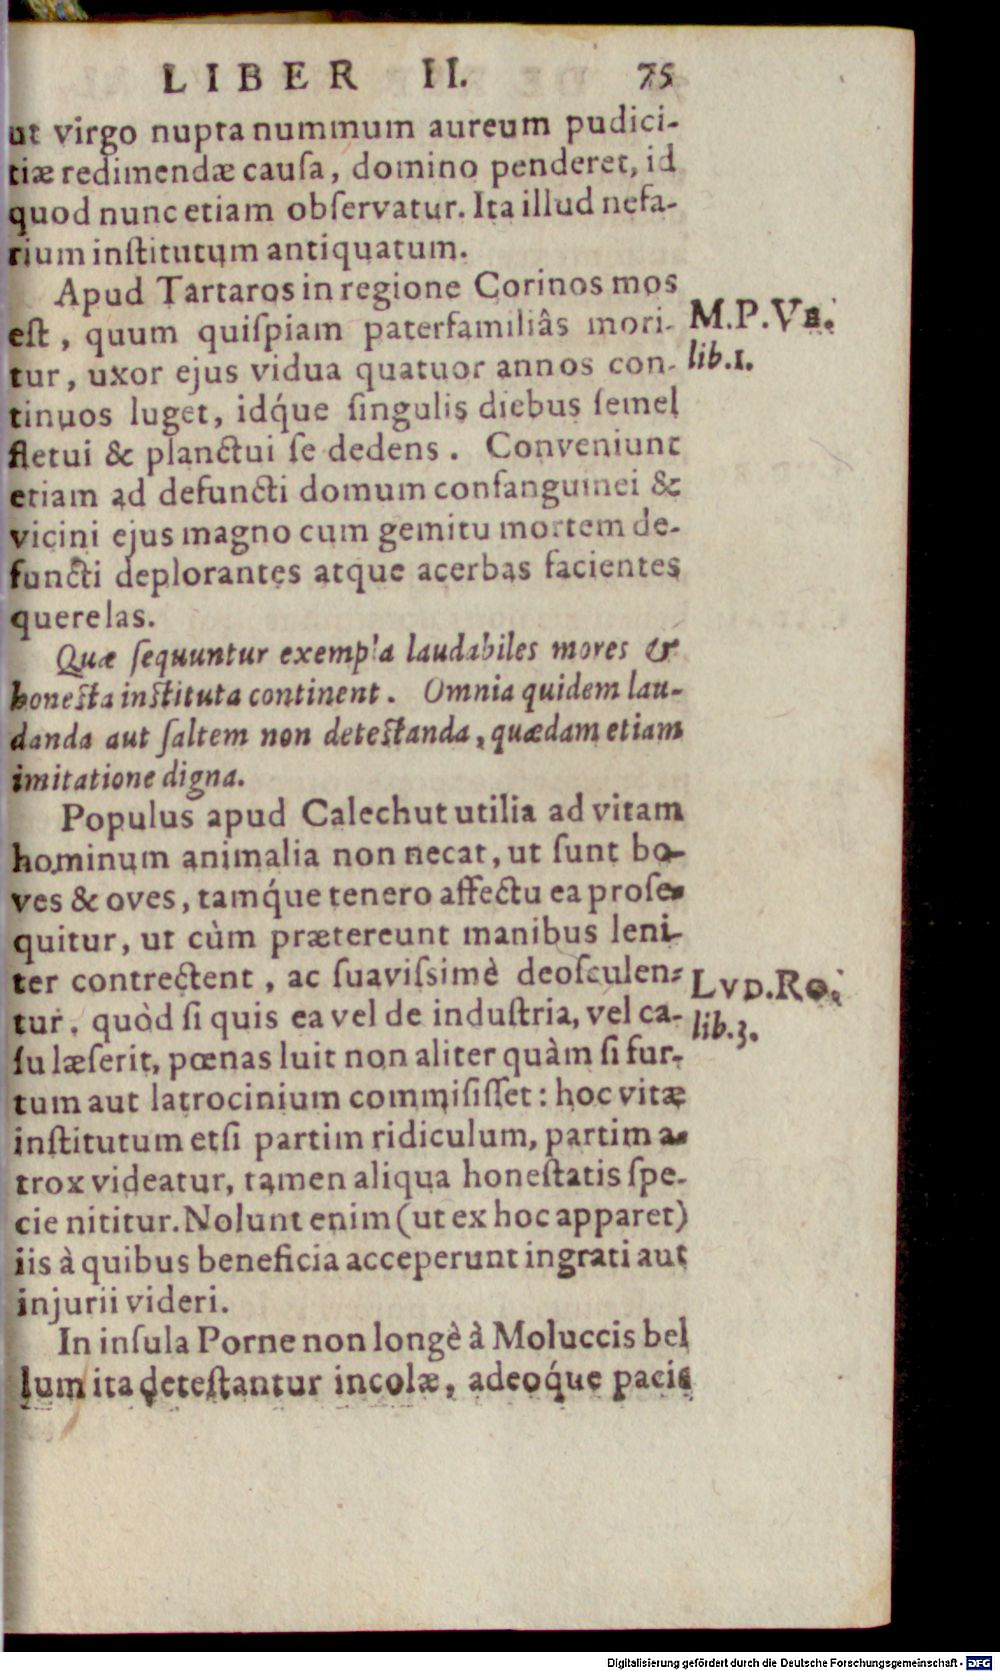 LIBER II. 75
ut virgo nupta nummum aureum pudici-
tiæ redimendæ cauſa, domino penderet, id
quod nunc etiam obſervatur. Ita illud nefa-
rium inſtitutum antiquatum.
Apud Tartaros in regione Corinos mos
eſt, quum quiſpiam paterfamiliâs mori-
tur, uxor ejus vidua quatuor annos con-
tinuos luget, idq́ue ſingulis diebus ſemel
fletui & planctui ſe dedens. Conveniunt
etiam ad defuncti domum conſanguinei &
vicini ejus magno cum gemitu mortem de-
functi deplorantes atque acerbas facientes
querelas.
M.P.Ve.
lib.1.
Quæ ſequuntur exempla laudabiles mores &
honeſta inſtituta continent. Omnia quidem lau-
danda aut ſaltem non deteſtanda, quædam etiam
imitatione digna.
Populus apud Calechut utilia ad vitam
hominum animalia non necat, ut ſunt bo-
ves & oves, tamq́ue tenero affectu ea proſe-
quitur, ut cùm prætereunt manibus leni-
ter contrectent, ac ſuaviſsimè deoſculen-
tur. quòd ſi quis ea vel de induſtria, vel ca-
ſu læſerit, pœnas luit non aliter quàm ſi fur-
tum aut latrocinium commiſiſſet: hoc vitæ
inſtitutum etſi partim ridiculum, partim a-
trox videatur, tamen aliqua honeſtatis ſpe-
cie nititur. Nolunt enim (ut ex hoc apparet)
iis à quibus beneficia acceperunt ingrati aut
injurii videri.
Lvd.Ro.
lib.3.
In inſula Porne non longè à Moluccis bel
lum ita deteſtantur incolæ, adeoq́ue pacis
Digitalisierung gefördert durch die Deutsche Forschungsgemeinschaft - DFG